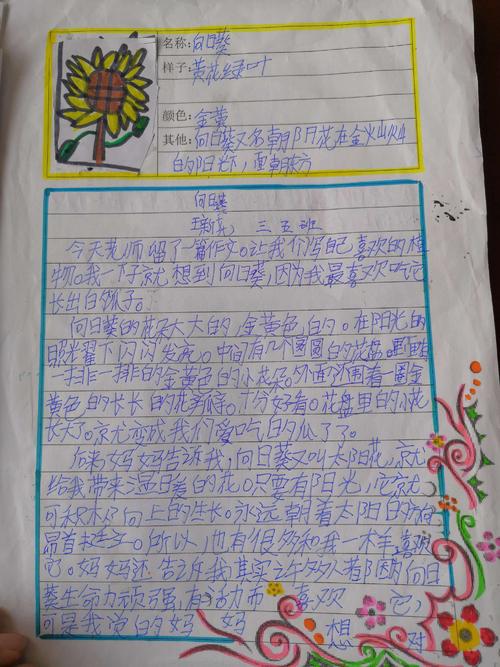 名称:向日葵
样子:黄花绿叶
颜色:金黄
其他:向日葵又名朝阳花在金火山火山
的阳光下,面朝东方
向日葵
三五班
今天老师留了一篇作文。让我们写自己喜欢的植
物。我一下子就想到向日葵,因为我最喜欢吃它
长出的瓜子。
向日葵的花朵大大的,金黄色的。在阳光的
照耀下闪闪发亮。中间有几个圆圆的花盘。
一排一排的金黄色的小花朵。外面还围着一圈金
黄色的长长的花瓣。十分好看。花盘里的小花
长大了。就变成我们爱吃的瓜了了。
后来妈妈告诉我,向日葵又叫太阳花,就
给我带来温暖的花。只要有阳光,它就
可积木向上的生长。永远朝着太阳的方向
昂首。所以,也有很多和我一样喜欢
它。妈妈还告诉我其实许多人都因向日
葵生命力顽强,有活力而喜欢它,
可是我的妈妈想对